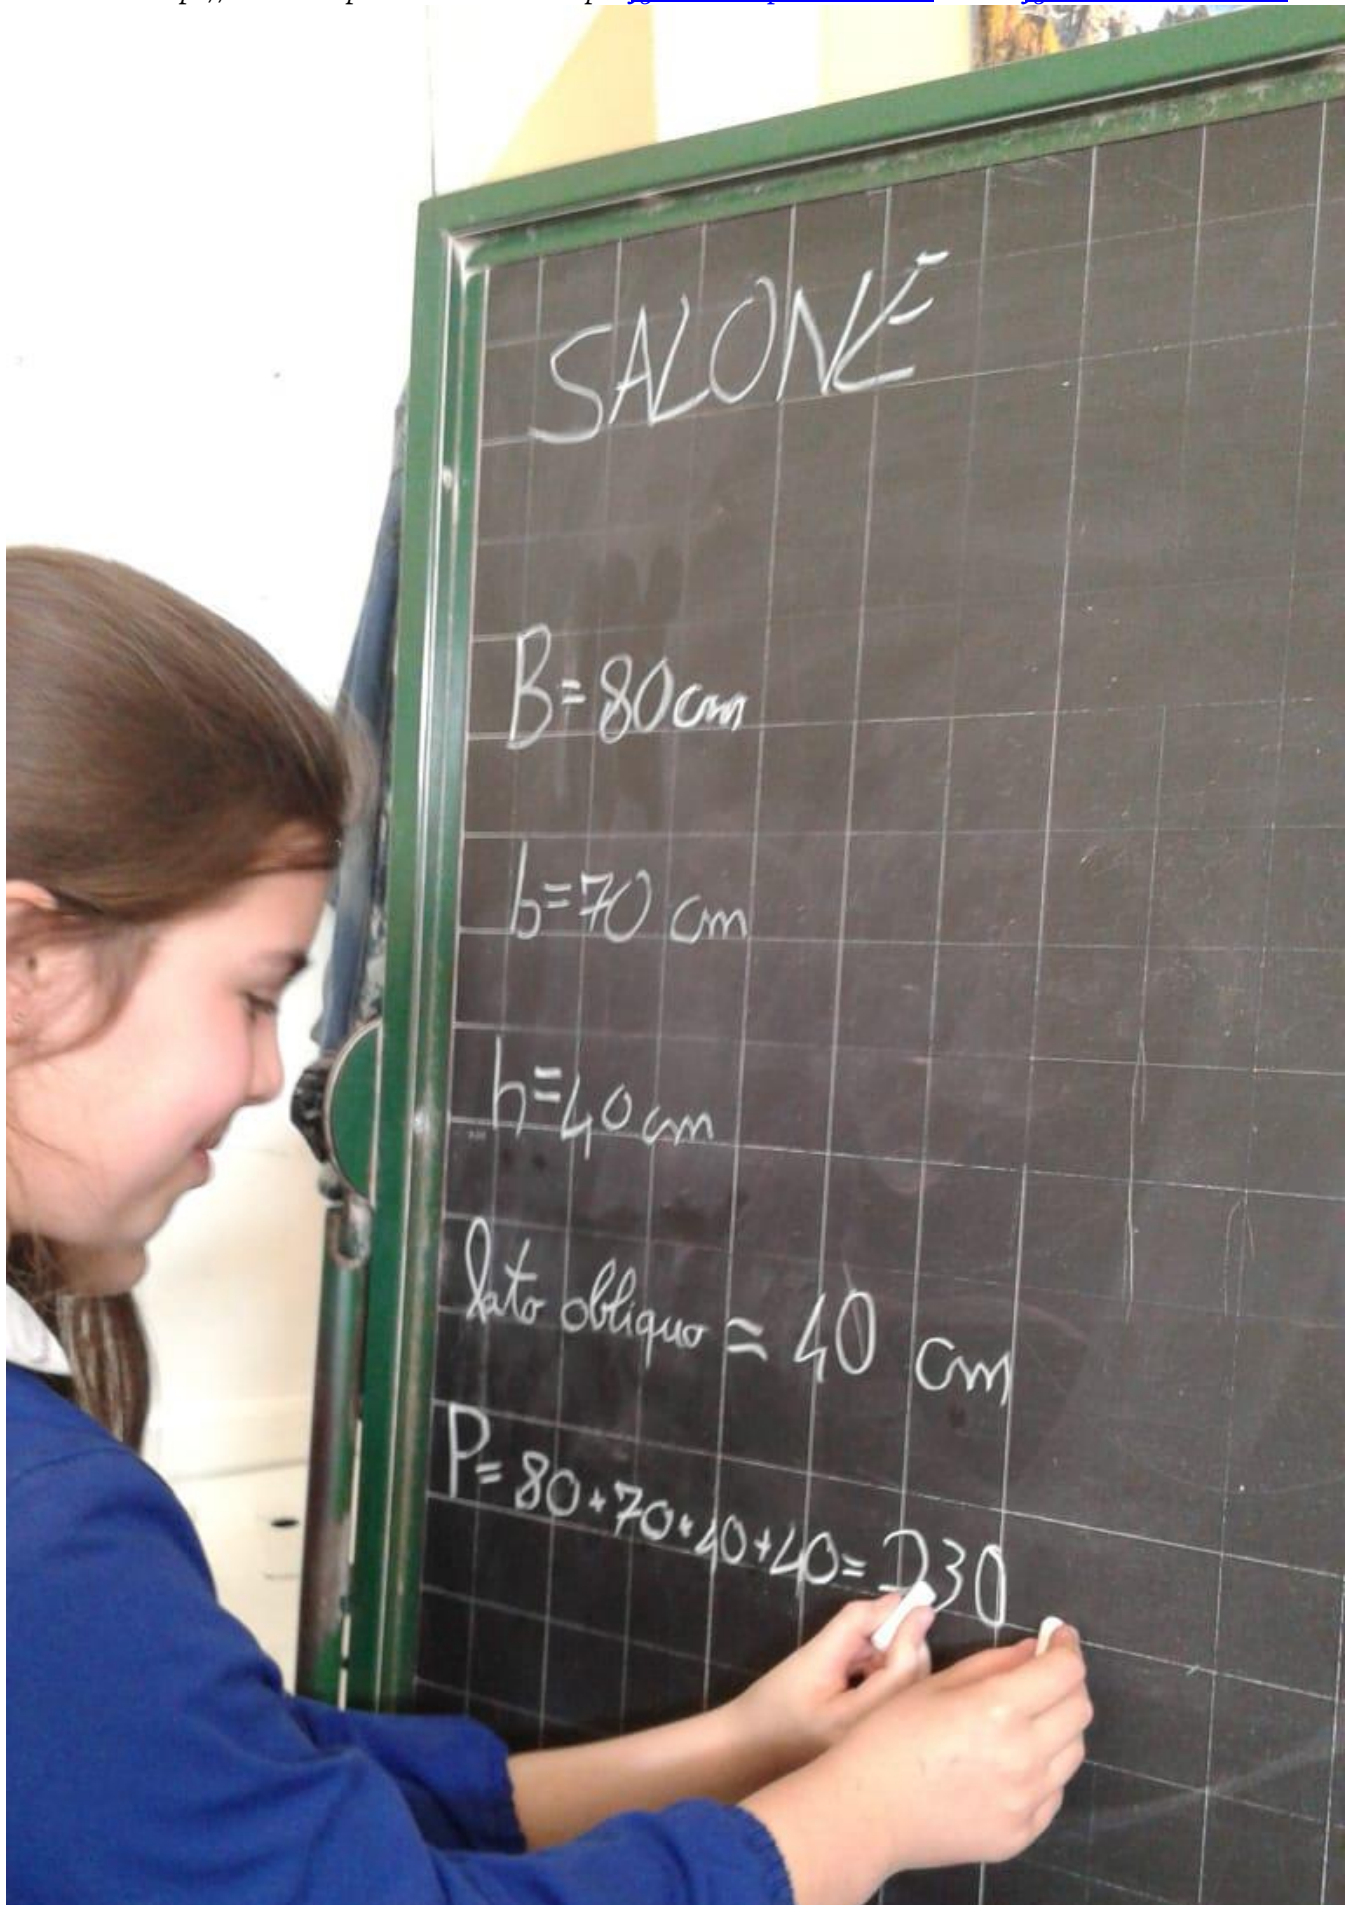 SALONE
B=80cm
b=70 cm
h=40cm
lato obliquo = 40 cm
P= 80+70+40+40= 230